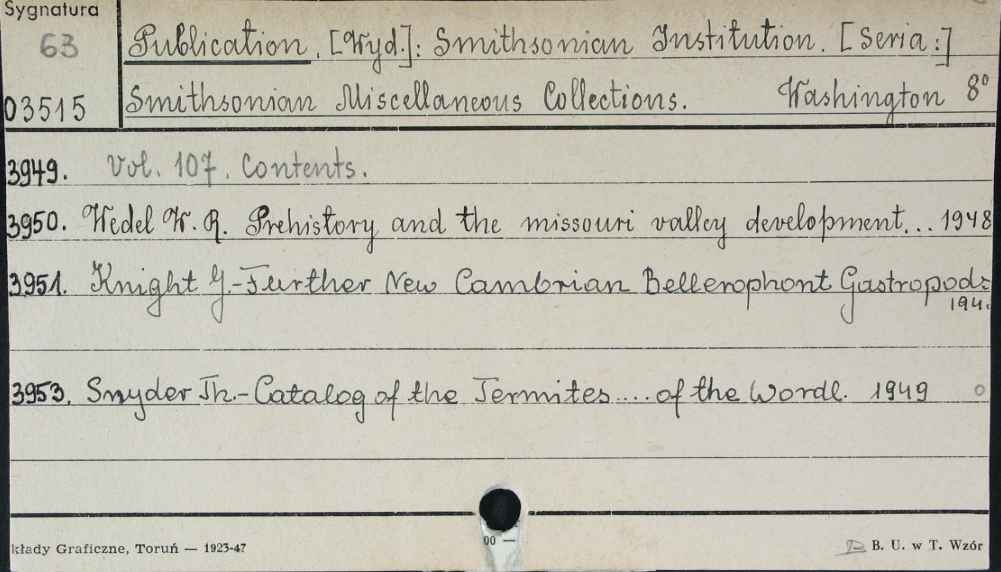 Sygnatura
63
03515
Publication. [Wyd.]: Smithsonian Institution. [Seria:]
Smithsonian Miscellaneous Collections. Washington 8°
3949. Vol. 107. Contents.
3950. Wedel W. R. Prehistory and the missouri valley development... 1948
3951. Knight J-Further New Cambrian Bellerophont Gastropods
194
3953. Snyder Th.-Catalog of the Termites.... of the Wordl. 1949
kłady Graficzne, Toruń — 1923-47
00 —
B. U. w T. Wzór